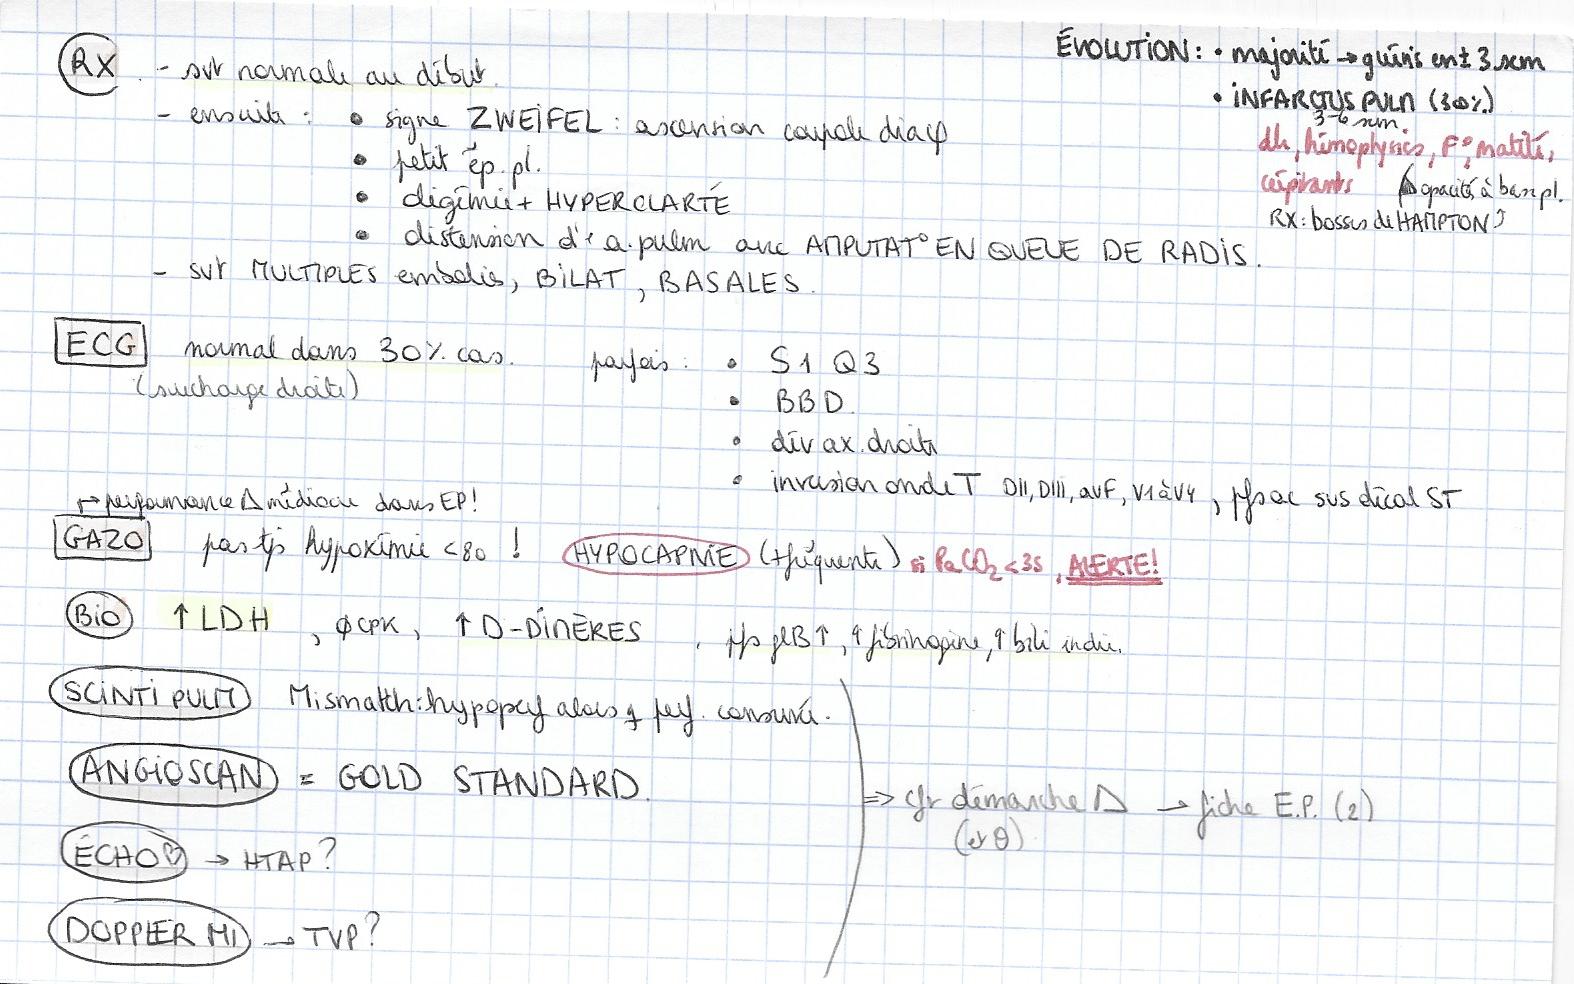 RX - svt normale au début.
- ensuite : • signe ZWEIFEL : ascension coupole diaφ
• petit ép. pl.
• oligémie + HYPERCLARTÉ
• distension d'1 a. pulm avec AMPUTAT° EN QUEUE DE RADIS.
- svt MULTIPLES embolies, BILAT, BASALES.
ÉVOLUTION : • majorité → guéris en ± 3 sem
• INFARCTUS PULM (30%)
3-6 sem.
dlr, hémoptysies, F°, matité,
crépitants opacité à base pl.
RX : bosses de HAMPTON
ECG normal dans 30% cas. parfois : • S1 Q3
(surcharge droite)
• BBD.
• dév ax. droite
• inversion onde T DII, DIII, aVF, V1 à V4, pfs ac sus décal ST
→ performance Δ médiocre dans EP!
GAZO pas tjs hypoxémie < 80 ! HYPOCAPNIE (+ fréquente) si PaCO2 < 35, ALERTE!
Bio ↑ LDH, φ CPK, ↑ D-DIMÈRES, pfs glB ↑, ↑ fibrinogène, ↑ bili indir.
SCINTI PULM Mismatch : hypoperf alors q perf. conservé.
ANGIOSCAN = GOLD STANDARD.
⇒ cfr démarche Δ → fiche E.P. (2)
(et θ)
ÉCHO♡ → HTAP?
DOPPLER MI → TVP?